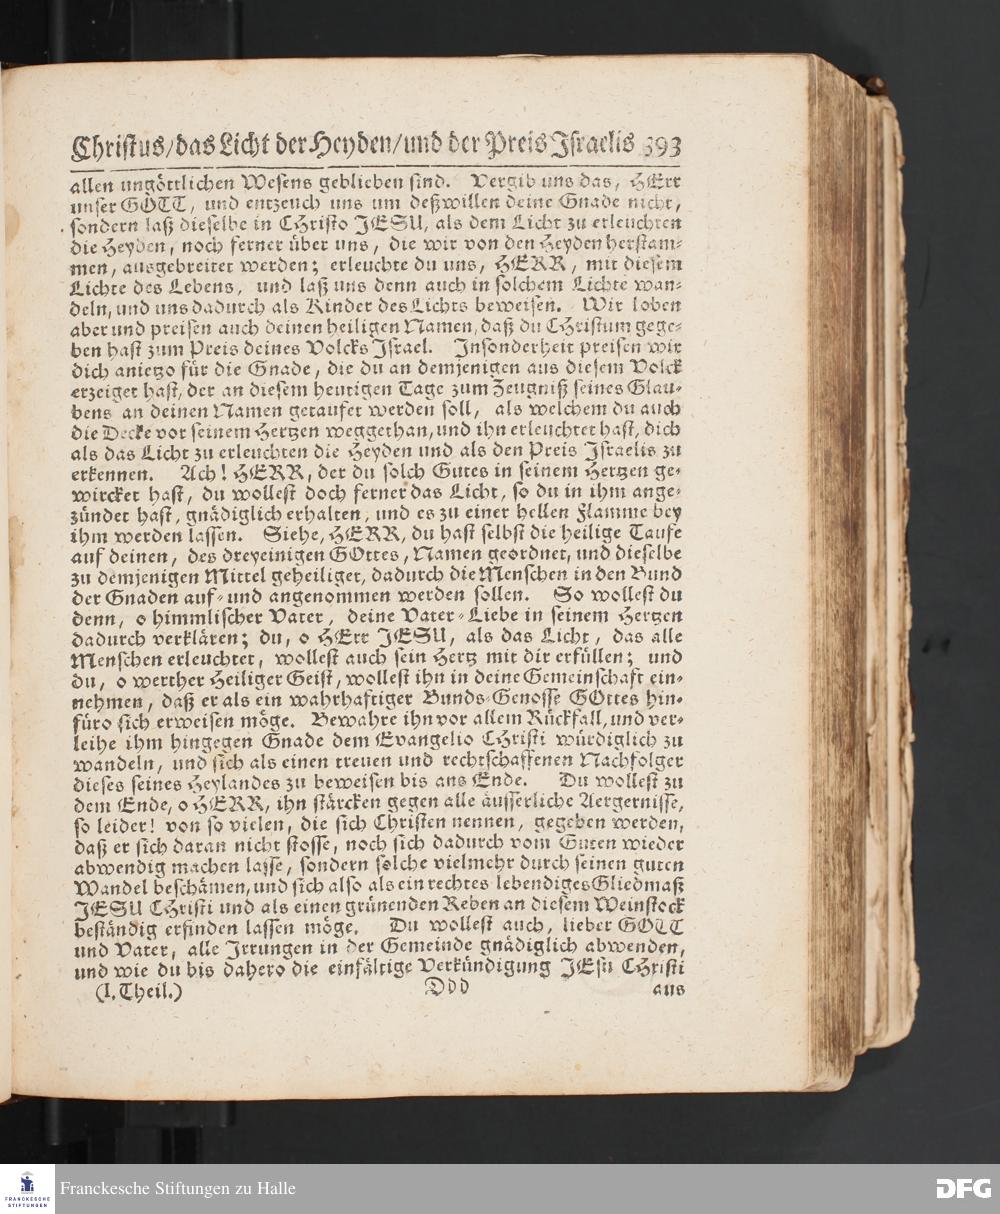 Christus/das Licht der Heyden/und der Preis Israelis 393
allen ungöttlichen Wesens geblieben sind. Vergib uns das, HErr
unser GOTT, und entzeuch uns um deßwillen deine Gnade nicht,
sondern laß dieselbe in CHristo JESU, als dem Licht zu erleuchten
die Heyden, noch ferner über uns, die wir von den Heyden herstam-
men, ausgebreitet werden; erleuchte du uns, HERR, mit diesem
Lichte des Lebens, und laß uns denn auch in solchem Lichte wan-
deln, und uns dadurch als Kinder des Lichts beweisen. Wir loben
aber und preisen auch deinen heiligen Namen, daß du CHristum gege-
ben hast zum Preis deines Volcks Israel. Insonderheit preisen wir
dich anietzo für die Gnade, die du an demjenigen aus diesem Volck
erzeiget hast, der an diesem heutigen Tage zum Zeugniß seines Glau-
bens an deinen Namen getaufet werden soll, als welchem du auch
die Decke vor seinem Hertzen weggethan, und ihn erleuchtet hast, dich
als das Licht zu erleuchten die Heyden und als den Preis Israelis zu
erkennen. Ach! HERR, der du solch Gutes in seinem Hertzen ge-
wircket hast, du wollest doch ferner das Licht, so du in ihm ange-
zündet hast, gnädiglich erhalten, und es zu einer hellen Flamme bey
ihm werden lassen. Siehe, HERR, du hast selbst die heilige Taufe
auf deinen, des dreyeinigen GOttes, Namen geordnet, und dieselbe
zu demjenigen Mittel geheiliget, dadurch die Menschen in den Bund
der Gnaden auf- und angenommen werden sollen. So wollest du
denn, o himmlischer Vater, deine Vater-Liebe in seinem Hertzen
dadurch verklären; du, o HErr JESU, als das Licht, das alle
Menschen erleuchtet, wollest auch sein Hertz mit dir erfüllen; und
du, o werther Heiliger Geist, wollest ihn in deine Gemeinschaft ein-
nehmen, daß er als ein wahrhaftiger Bunds-Genosse GOttes hin-
füro sich erweisen möge. Bewahre ihn vor allem Rückfall, und ver-
leihe ihm hingegen Gnade dem Evangelio CHristi würdiglich zu
wandeln, und sich als einen treuen und rechtschaffenen Nachfolger
dieses seines Heylandes zu beweisen bis ans Ende. Du wollest zu
dem Ende, o HERR, ihn stärcken gegen alle äusserliche Aergernisse,
so leider! von so vielen, die sich Christen nennen, gegeben werden,
daß er sich daran nicht stosse, noch sich dadurch vom Guten wieder
abwendig machen lasse, sondern solche vielmehr durch seinen guten
Wandel beschämen, und sich also als ein rechtes lebendiges Gliedmaß
JESU CHristi und als einen grünenden Reben an diesem Weinstock
beständig erfinden lassen möge. Du wollest auch, lieber GOTT
und Vater, alle Irrungen in der Gemeinde gnädiglich abwenden,
und wie du bis dahero die einfältige Verkündigung JEsu CHristi
(I. Theil.) Ddd aus
FRANCKESCHE
STIFTUNGEN
Franckesche Stiftungen zu Halle
DFG